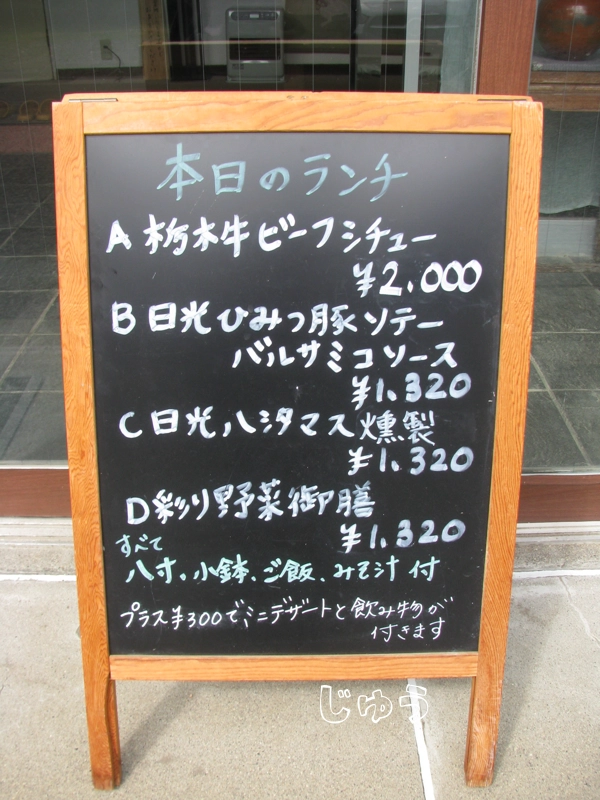 本日のランチ
A 栃木牛ビーフシチュー
¥2,000
B 日光ひみつ豚ソテー
バルサミコソース
¥1,320
C 日光八汐マス燻製
¥1,320
D 彩り野菜御膳
¥1,320
すべて
八寸、小鉢、ご飯、みそ汁 付
プラス¥300で、ミニデザートと飲み物が
付きます
じゅう